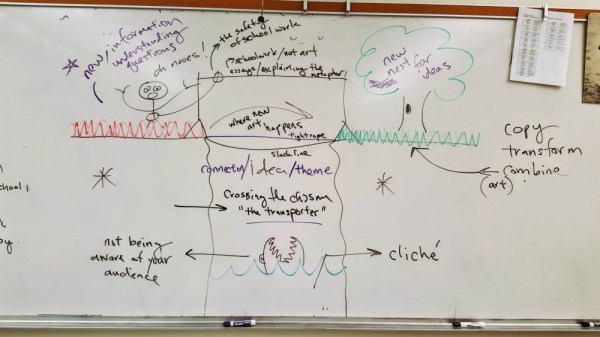 new/information
understanding
questions
oh noes!
the safety
of schoolwork
schoolwork/not art
essays/explaining the
metaphor
new
nest for
ideas
where new
art happens
tightrope
slackline
connector/idea/theme
crossing the chasm
"the transporter"
copy
transform
combine
(art)
not being
aware of your
audience
cliché